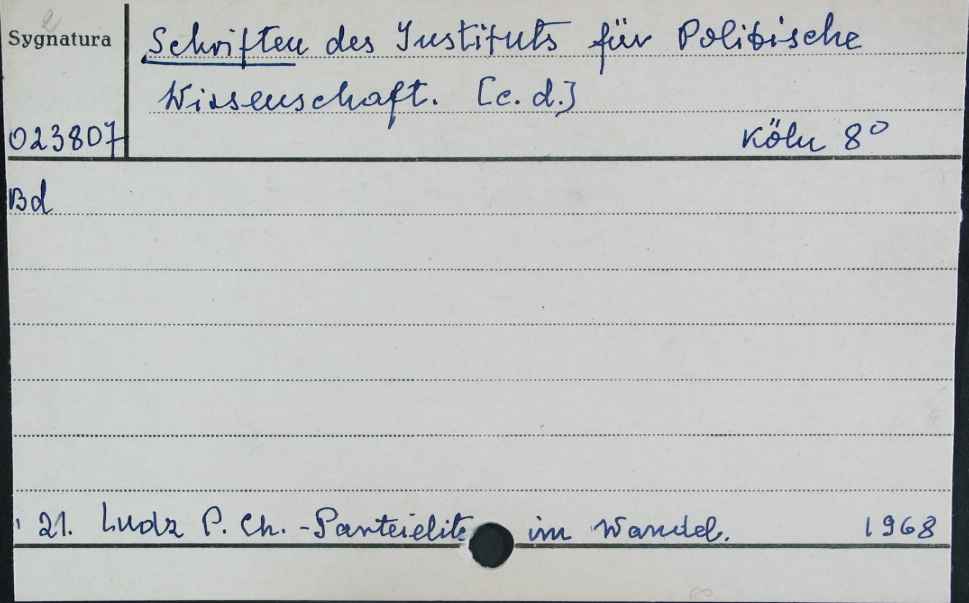 Sygnatura
Schriften des Instituts für Politische
Wissenschaft. [c. d.]
023807
Köln 8°
Bd
21. Ludz P. Ch. - Parteielite im Wandel. 1968